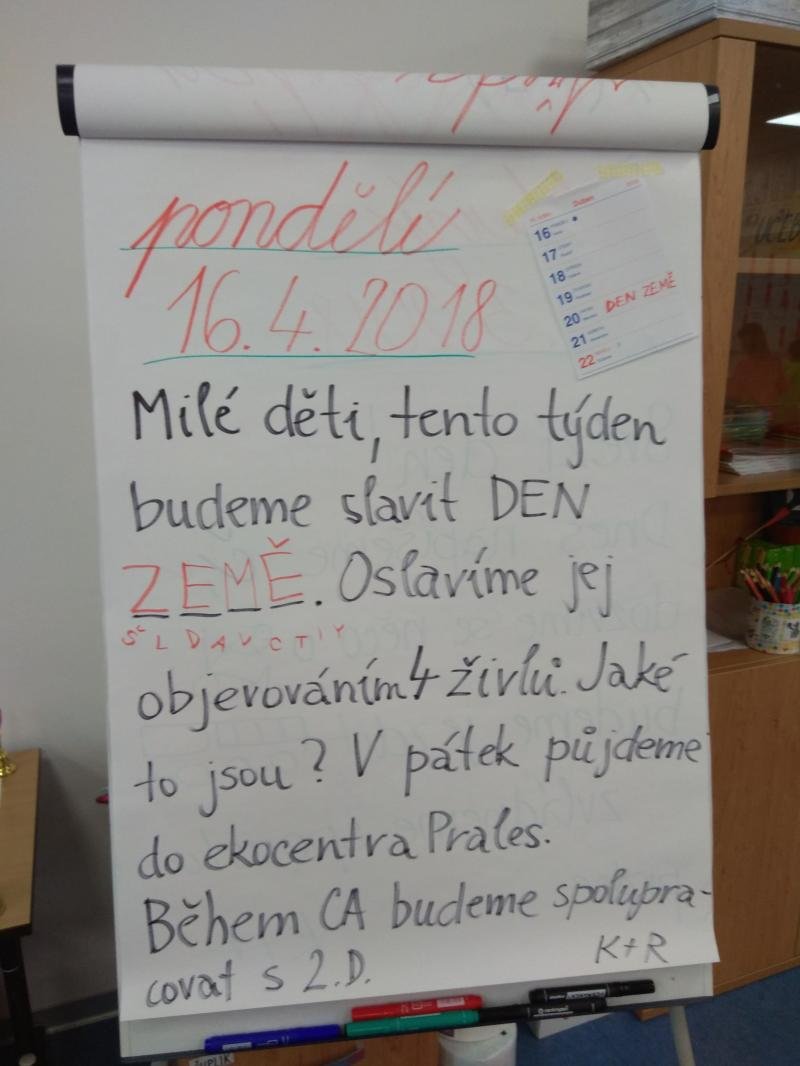 pondělí
16.4.2018
Duben
16
17
18
19
20
21
22
DEN ZEMĚ
Milé děti, tento týden
budeme slavit DEN
ZEMĚ. Oslavíme jej
S L D A V C T I Y
objevováním 4 živlů. Jaké
to jsou? V pátek půjdeme
do ekocentra Prales.
Během CA budeme spolupra-
covat s 2.D.
K+R